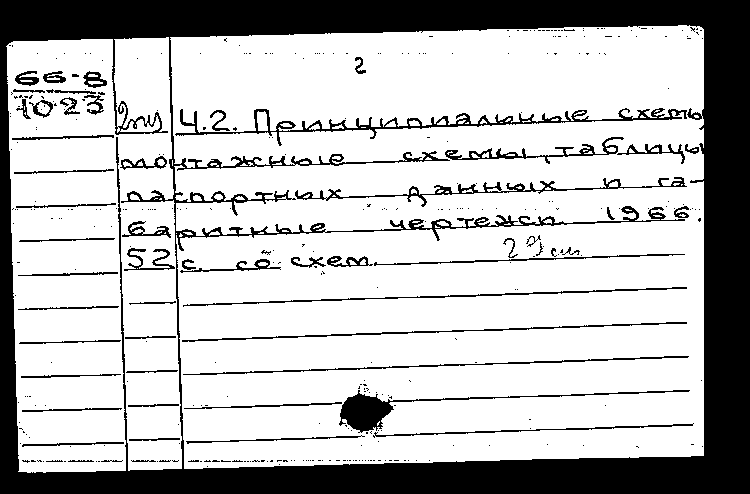 2
66-8
1023
Ч.2. Принципиальные схемы,
монтажные схемы, таблицы
паспортных данных и га-
баритные чертежи. 1966.
52 с. со схем. 29 см